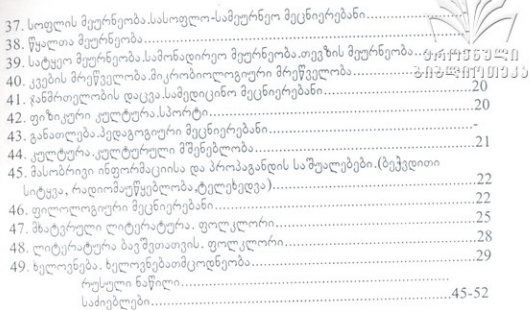 37. სოფლის მეურნეობა.სასოფლო-სამეურნეო მეცნიერებანი
38. წყალთა მეურნეობა
39. სატყეო მეურნეობა.სამონადირეო მეურნეობა.თევზის მეურნეობა
ეროვნული
ბიბლიოთეკა
40. კვების მრეწველობა.მიკრობიოლოგიური მრეწველობა
41. ჯანმრთელობის დაცვა.სამედიცინო მეცნიერებანი 20
42. ფიზიკური კულტურა.სპორტი 20
43. განათლება.პედაგოგიური მეცნიერებანი -
44. კულტურა.კულტურული მშენებლობა 21
45. მასობრივი ინფორმაციისა და პროპაგანდის საშუალებები.(ბეჭვდითი
სიტყვა, რადიომაუწყებლობა,ტელეხედვა) 22
46. ფილოლოგიური მეცნიერებანი 22
47. მხატვრული ლიტერატურა. ფოლკლორი 25
48. ლიტერატურა ბავშვთათვის. ფოლკლორი 28
49. ხელოვნება. ხელოვნებათმცოდნეობა 29
რუსული ნაწილი
საძიებლები 45-52